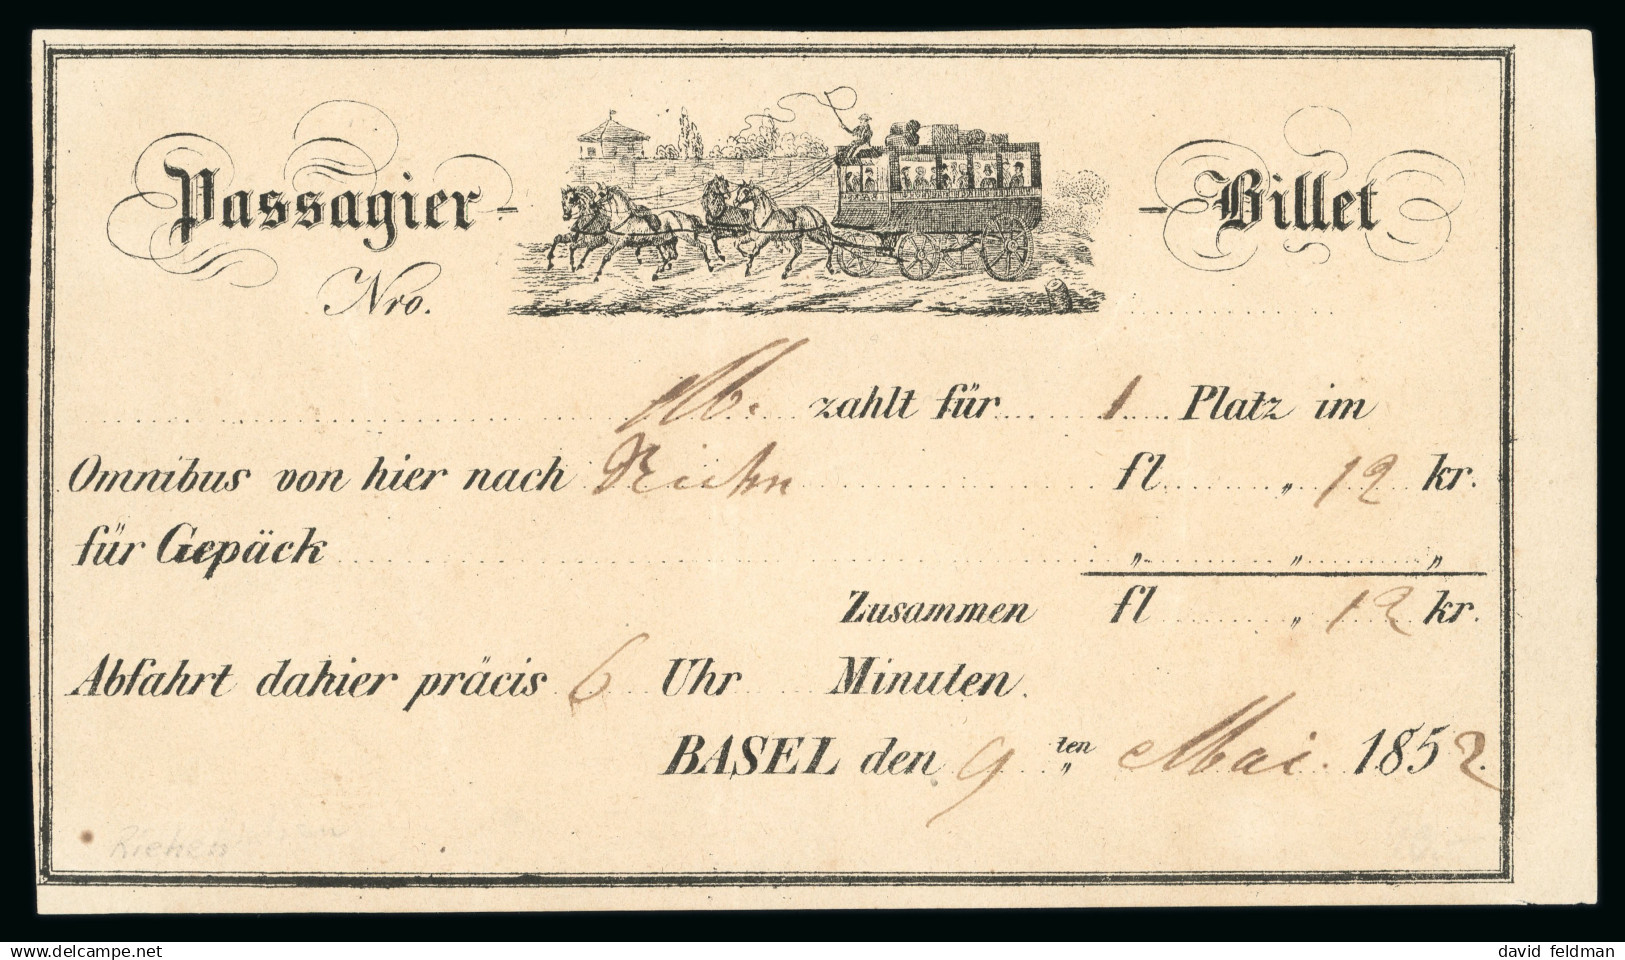 Passagier- -Billet
Nro.
zahlt für 1 Platz im
Omnibus von hier nach Riehn fl „ 12 kr.
für Gepäck „ „ „
Zusammen fl „ 12 kr.
Abfahrt dahier präcis 6 Uhr Minuten.
BASEL den 9 ten „ Mai. 1852.
Riehen
www.delcampe.net
david feldman